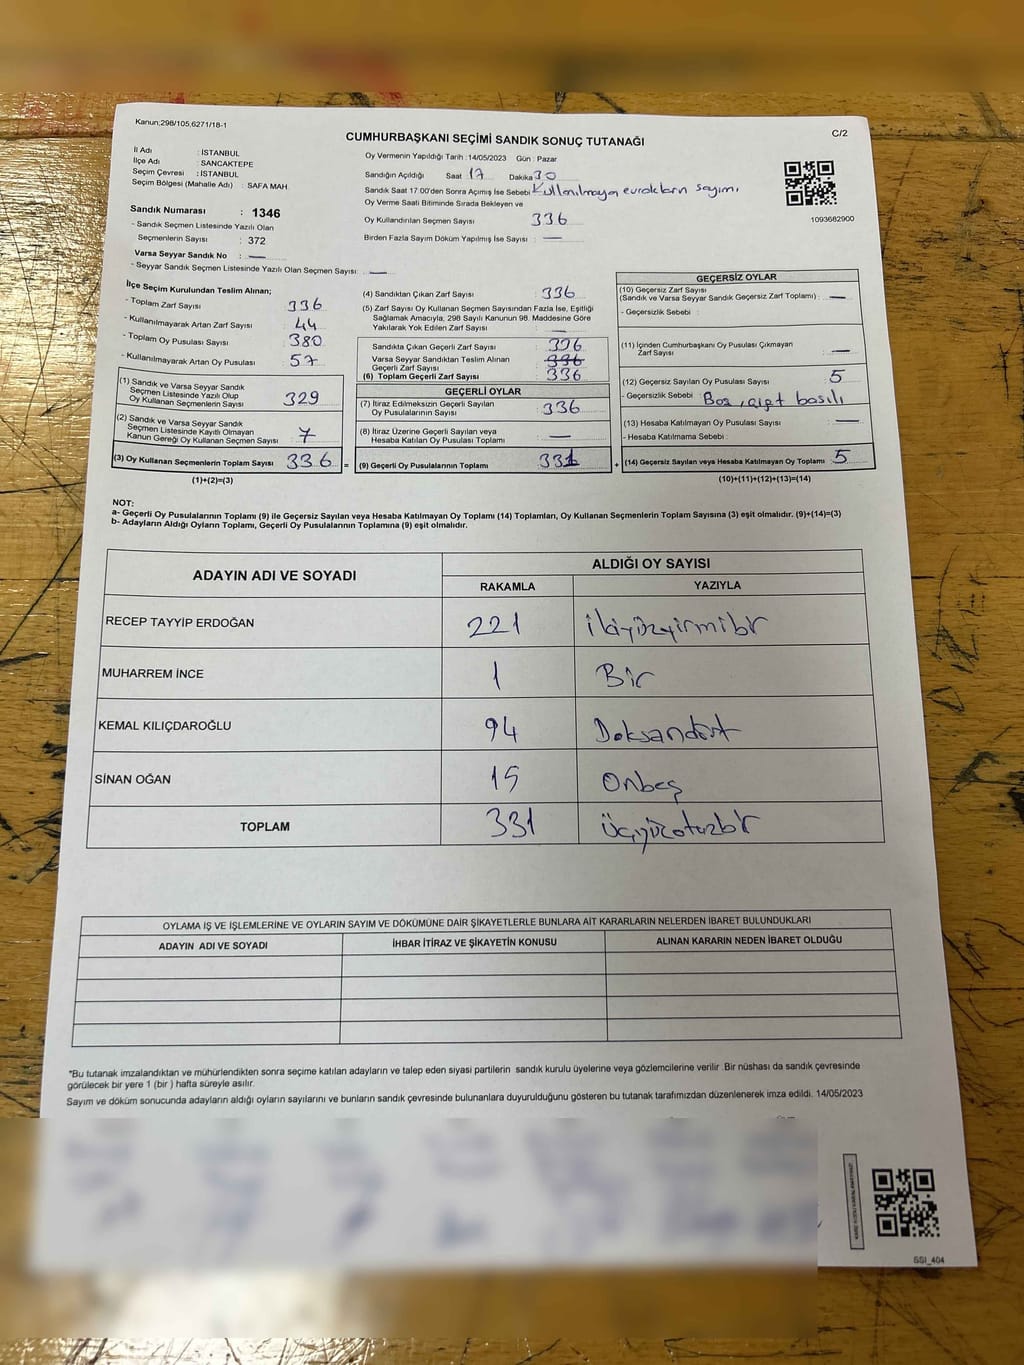 Kanun:298/105,6271/18-1
C/2
CUMHURBAŞKANI SEÇİMİ SANDIK SONUÇ TUTANAĞI
İl Adı : İSTANBUL
İlçe Adı : SANCAKTEPE
Seçim Çevresi : İSTANBUL
Seçim Bölgesi (Mahalle Adı) : SAFA MAH.
Sandık Numarası : 1346
- Sandık Seçmen Listesinde Yazılı Olan
Seçmenlerin Sayısı : 372
Varsa Seyyar Sandık No : —
- Seyyar Sandık Seçmen Listesinde Yazılı Olan Seçmen Sayısı: —
Oy Vermenin Yapıldığı Tarih :14/05/2023 Gün : Pazar
Sandığın Açıldığı Saat 17 Dakika 30
Sandık Saat 17:00'den Sonra Açımış İse Sebebi Kullanılmayan evrakların sayımı
Oy Verme Saati Bitiminde Sırada Bekleyen ve
Oy Kullandırılan Seçmen Sayısı 336
Birden Fazla Sayım Döküm Yapılmış İse Sayısı : —
1093682900
İlçe Seçim Kurulundan Teslim Alınan;
- Toplam Zarf Sayısı 336
- Kullanılmayarak Artan Zarf Sayısı : 44
- Toplam Oy Pusulası Sayısı : 380
- Kullanılmayarak Artan Oy Pusulası : 57
(1) Sandık ve Varsa Seyyar Sandık
Seçmen Listesinde Yazılı Olup
Oy Kullanan Seçmenlerin Sayısı : 329
(2) Sandık ve Varsa Seyyar Sandık
Seçmen Listesinde Kayıtlı Olmayan
Kanun Gereği Oy Kullanan Seçmen Sayısı : 7
(3) Oy Kullanan Seçmenlerin Toplam Sayısı : 336 =
(1)+(2)=(3)
(4) Sandıktan Çıkan Zarf Sayısı : 336
(5) Zarf Sayısı Oy Kullanan Seçmen Sayısından Fazla İse, Eşitliği
Sağlamak Amacıyla, 298 Sayılı Kanunun 98. Maddesine Göre
Yakılarak Yok Edilen Zarf Sayısı : —
Sandıkta Çıkan Geçerli Zarf Sayısı : 336
Varsa Seyyar Sandıktan Teslim Alınan
Geçerli Zarf Sayısı : 336
(6) Toplam Geçerli Zarf Sayısı : 336
GEÇERLİ OYLAR
(7) İtiraz Edilmeksizin Geçerli Sayılan
Oy Pusulalarının Sayısı : 336
(8) İtiraz Üzerine Geçerli Sayılan veya
Hesaba Katılan Oy Pusulası Toplamı : —
(9) Geçerli Oy Pusulalarının Toplamı : 331 +
GEÇERSİZ OYLAR
(10) Geçersiz Zarf Sayısı
(Sandık ve Varsa Seyyar Sandık Geçersiz Zarf Toplamı) : —
- Geçersizlik Sebebi :
(11) İçinden Cumhurbaşkanı Oy Pusulası Çıkmayan
Zarf Sayısı : —
(12) Geçersiz Sayılan Oy Pusulası Sayısı : 5
- Geçersizlik Sebebi : Boş, çift basılı
(13) Hesaba Katılmayan Oy Pusulası Sayısı : —
- Hesaba Katılmama Sebebi :
(14) Geçersiz Sayılan veya Hesaba Katılmayan Oy Toplamı : 5
(10)+(11)+(12)+(13)=(14)
NOT:
a- Geçerli Oy Pusulalarının Toplamı (9) ile Geçersiz Sayılan veya Hesaba Katılmayan Oy Toplamı (14) Toplamları, Oy Kullanan Seçmenlerin Toplam Sayısına (3) eşit olmalıdır. (9)+(14)=(3)
b- Adayların Aldığı Oyların Toplamı, Geçerli Oy Pusulalarının Toplamına (9) eşit olmalıdır.
ADAYIN ADI VE SOYADI
ALDIĞI OY SAYISI
RAKAMLA YAZIYLA
RECEP TAYYİP ERDOĞAN 221 ikiyüzyirmibir
MUHARREM İNCE 1 Bir
KEMAL KILIÇDAROĞLU 94 Doksandört
SİNAN OĞAN 15 Onbeş
TOPLAM 331 Üçyüzotuzbir
OYLAMA İŞ VE İŞLEMLERİNE VE OYLARIN SAYIM VE DÖKÜMÜNE DAİR ŞİKAYETLERLE BUNLARA AİT KARARLARIN NELERDEN İBARET BULUNDUKLARI
ADAYIN ADI VE SOYADI İHBAR İTİRAZ VE ŞİKAYETİN KONUSU ALINAN KARARIN NEDEN İBARET OLDUĞU
*Bu tutanak imzalandıktan ve mühürlendikten sonra seçime katılan adayların ve talep eden siyasi partilerin sandık kurulu üyelerine veya gözlemcilerine verilir. Bir nüshası da sandık çevresinde
görülecek bir yere 1 (bir ) hafta süreyle asılır.
Sayım ve döküm sonucunda adayların aldığı oyların sayılarını ve bunların sandık çevresinde bulunanlara duyurulduğunu gösteren bu tutanak tarafımızdan düzenlenerek imza edildi. 14/05/2023
SSI_404